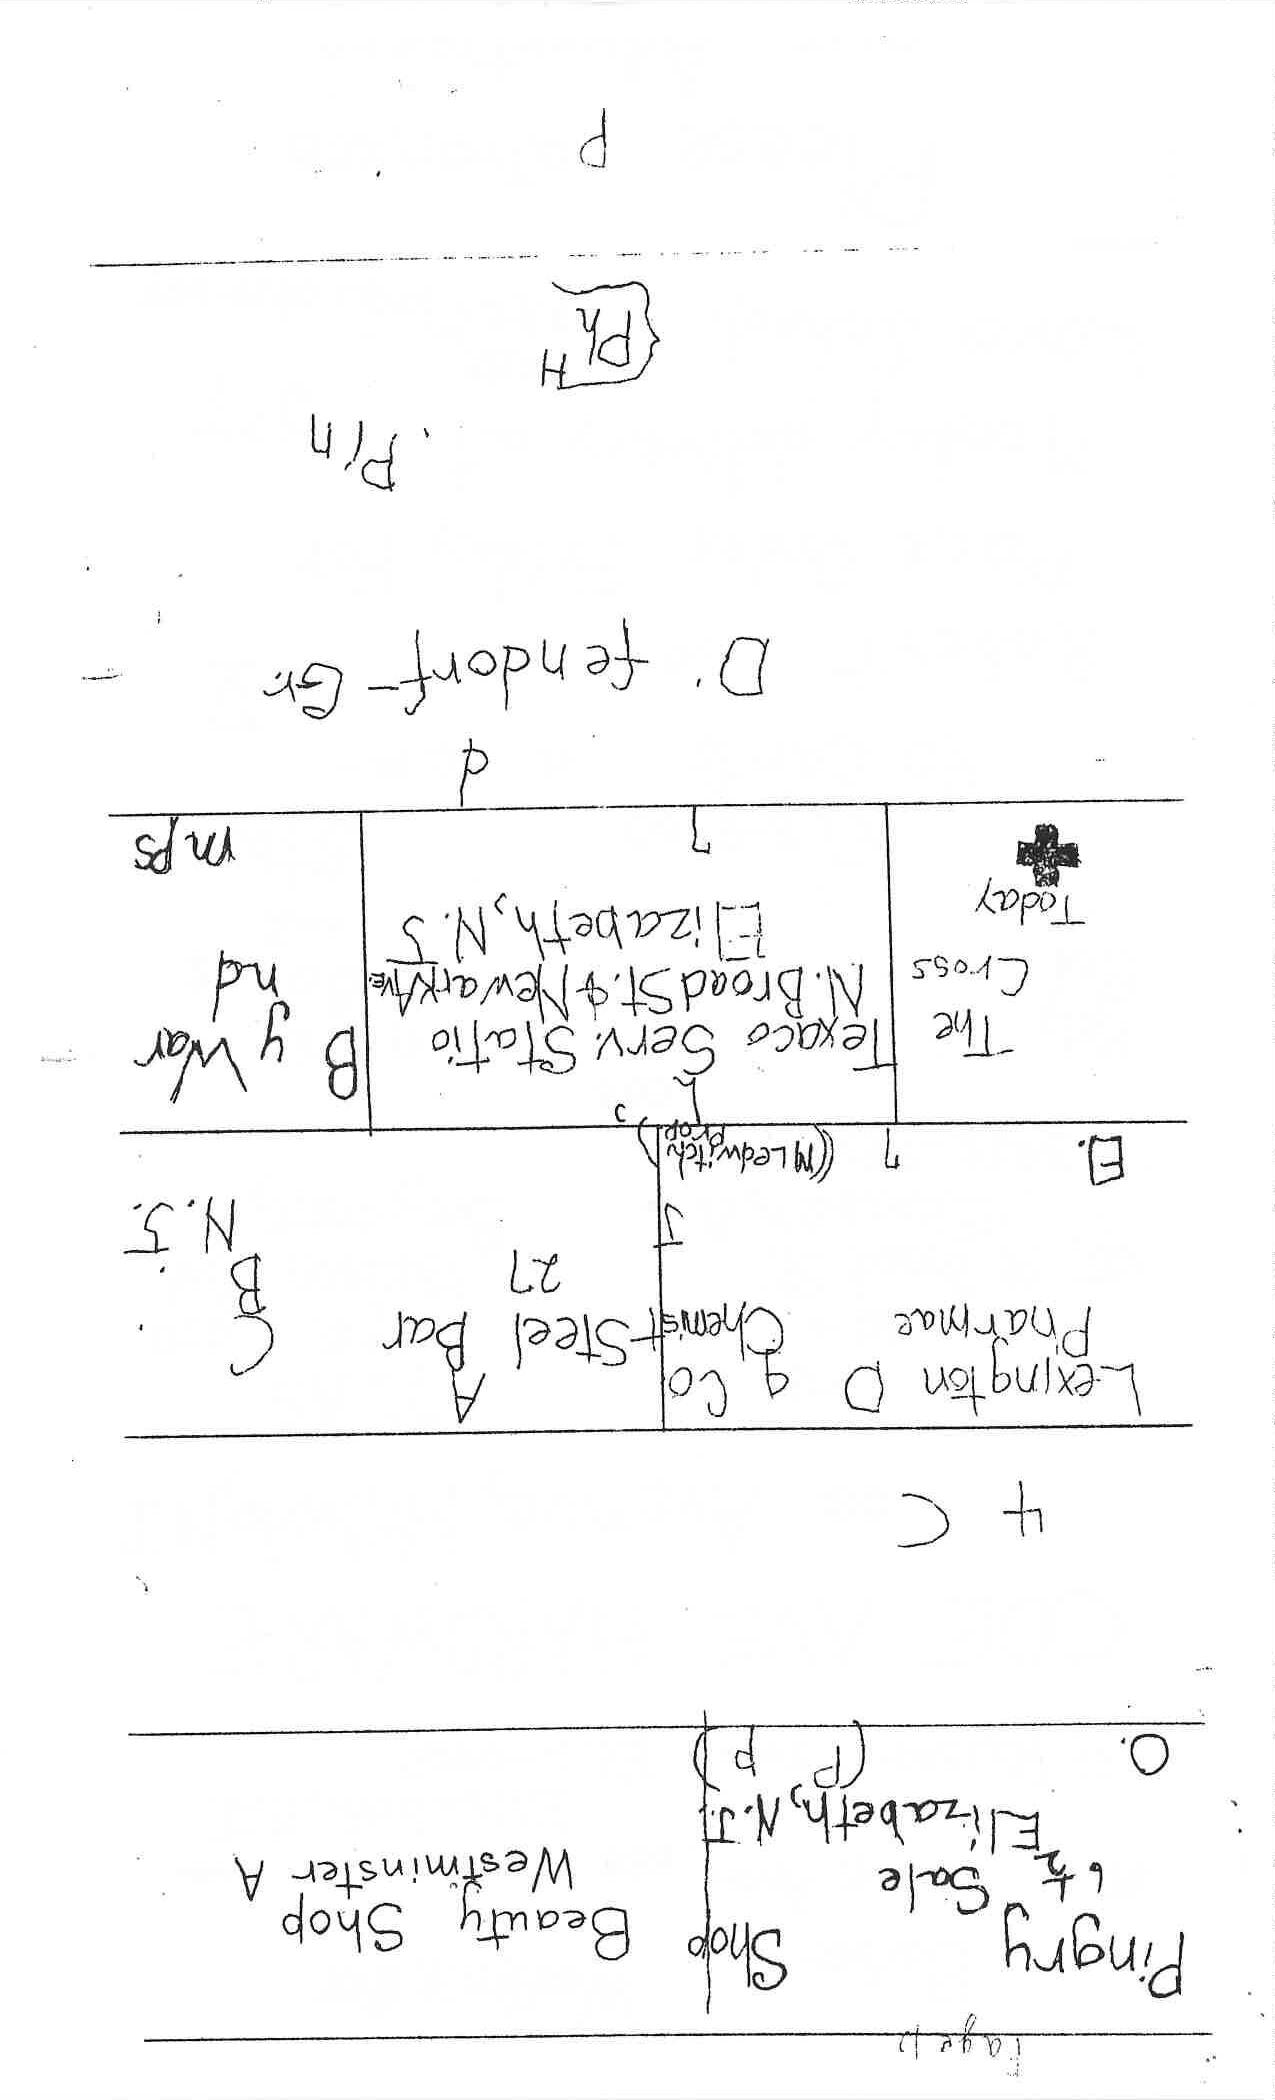 Page 12
Pingry Shop Beauty Shop
6 1/2 Sale Westminster A
Elizabeth, N.J.
O. (P P)
4 C
Lexington D g Co A C
Pharmac Chemist Steel Bar B
27 N.J.
J
E. 7 (M Ledwitch Prop)
The Texaco Serv. Statio By War
Cross N. Broad St. & Newark Ave. nd
Today Elizabeth, N.J mps
7
d
D. fendorf - Gr.
Pin
{Ph H
P